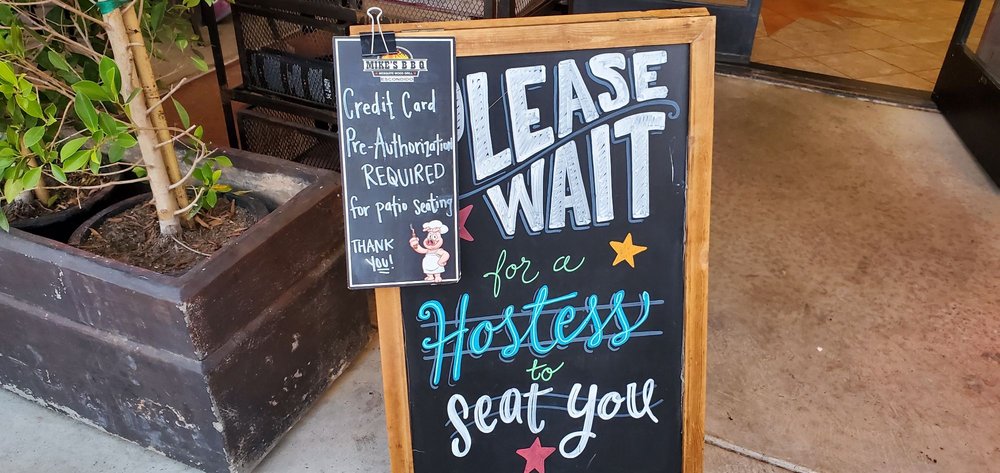 MIKE'S BBQ
MESQUITE WOOD GRILL
ESCONDIDO
Credit Card
Pre-Authorization
REQUIRED
for patio seating
THANK
YOU!
PLEASE
WAIT
for a
Hostess
to
Seat you